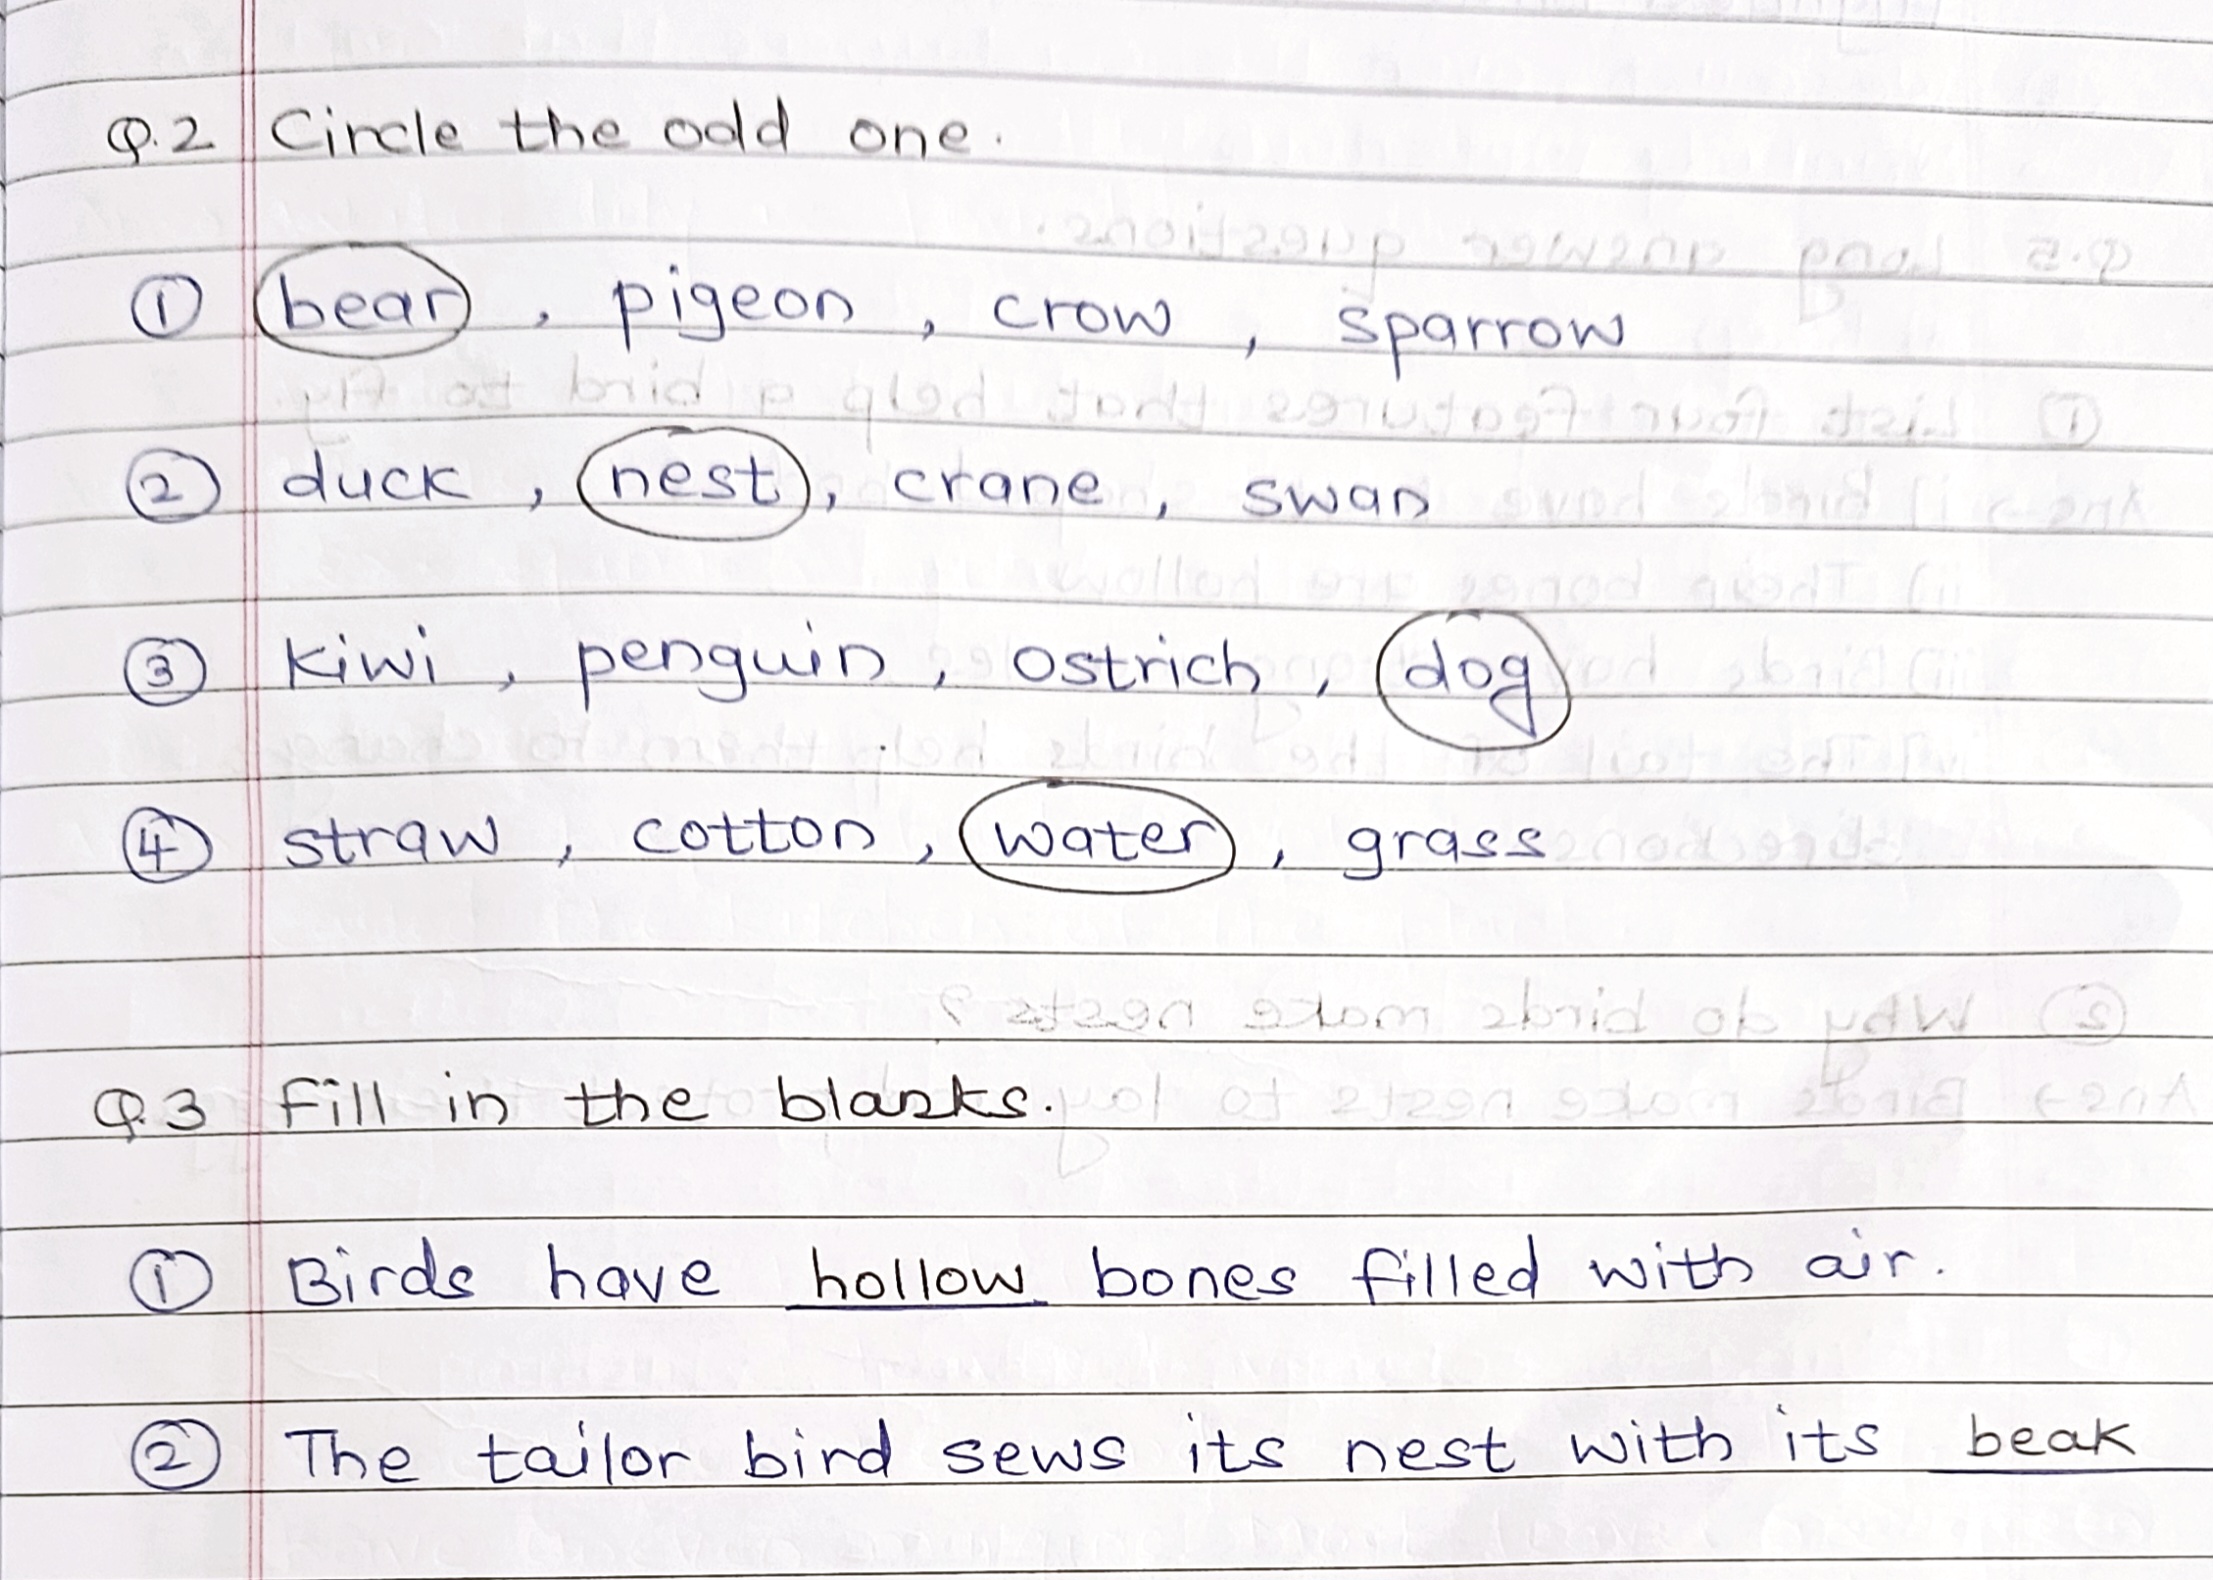 Q.2 Circle the odd one.
① bear, pigeon, crow, sparrow
② duck, nest, crane, swan
③ kiwi, penguin, ostrich, dog
④ straw, cotton, water, grass
Q.3 Fill in the blanks.
① Birds have hollow bones filled with air.
② The tailor bird sews its nest with its beak